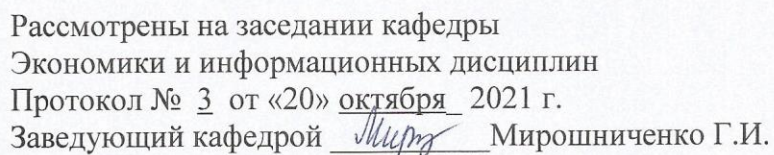 Рассмотрены на заседании кафедры
Экономики и информационных дисциплин
Протокол № 3 от «20» октября_ 2021 г.
Заведующий кафедрой __________ Мирошниченко Г.И.